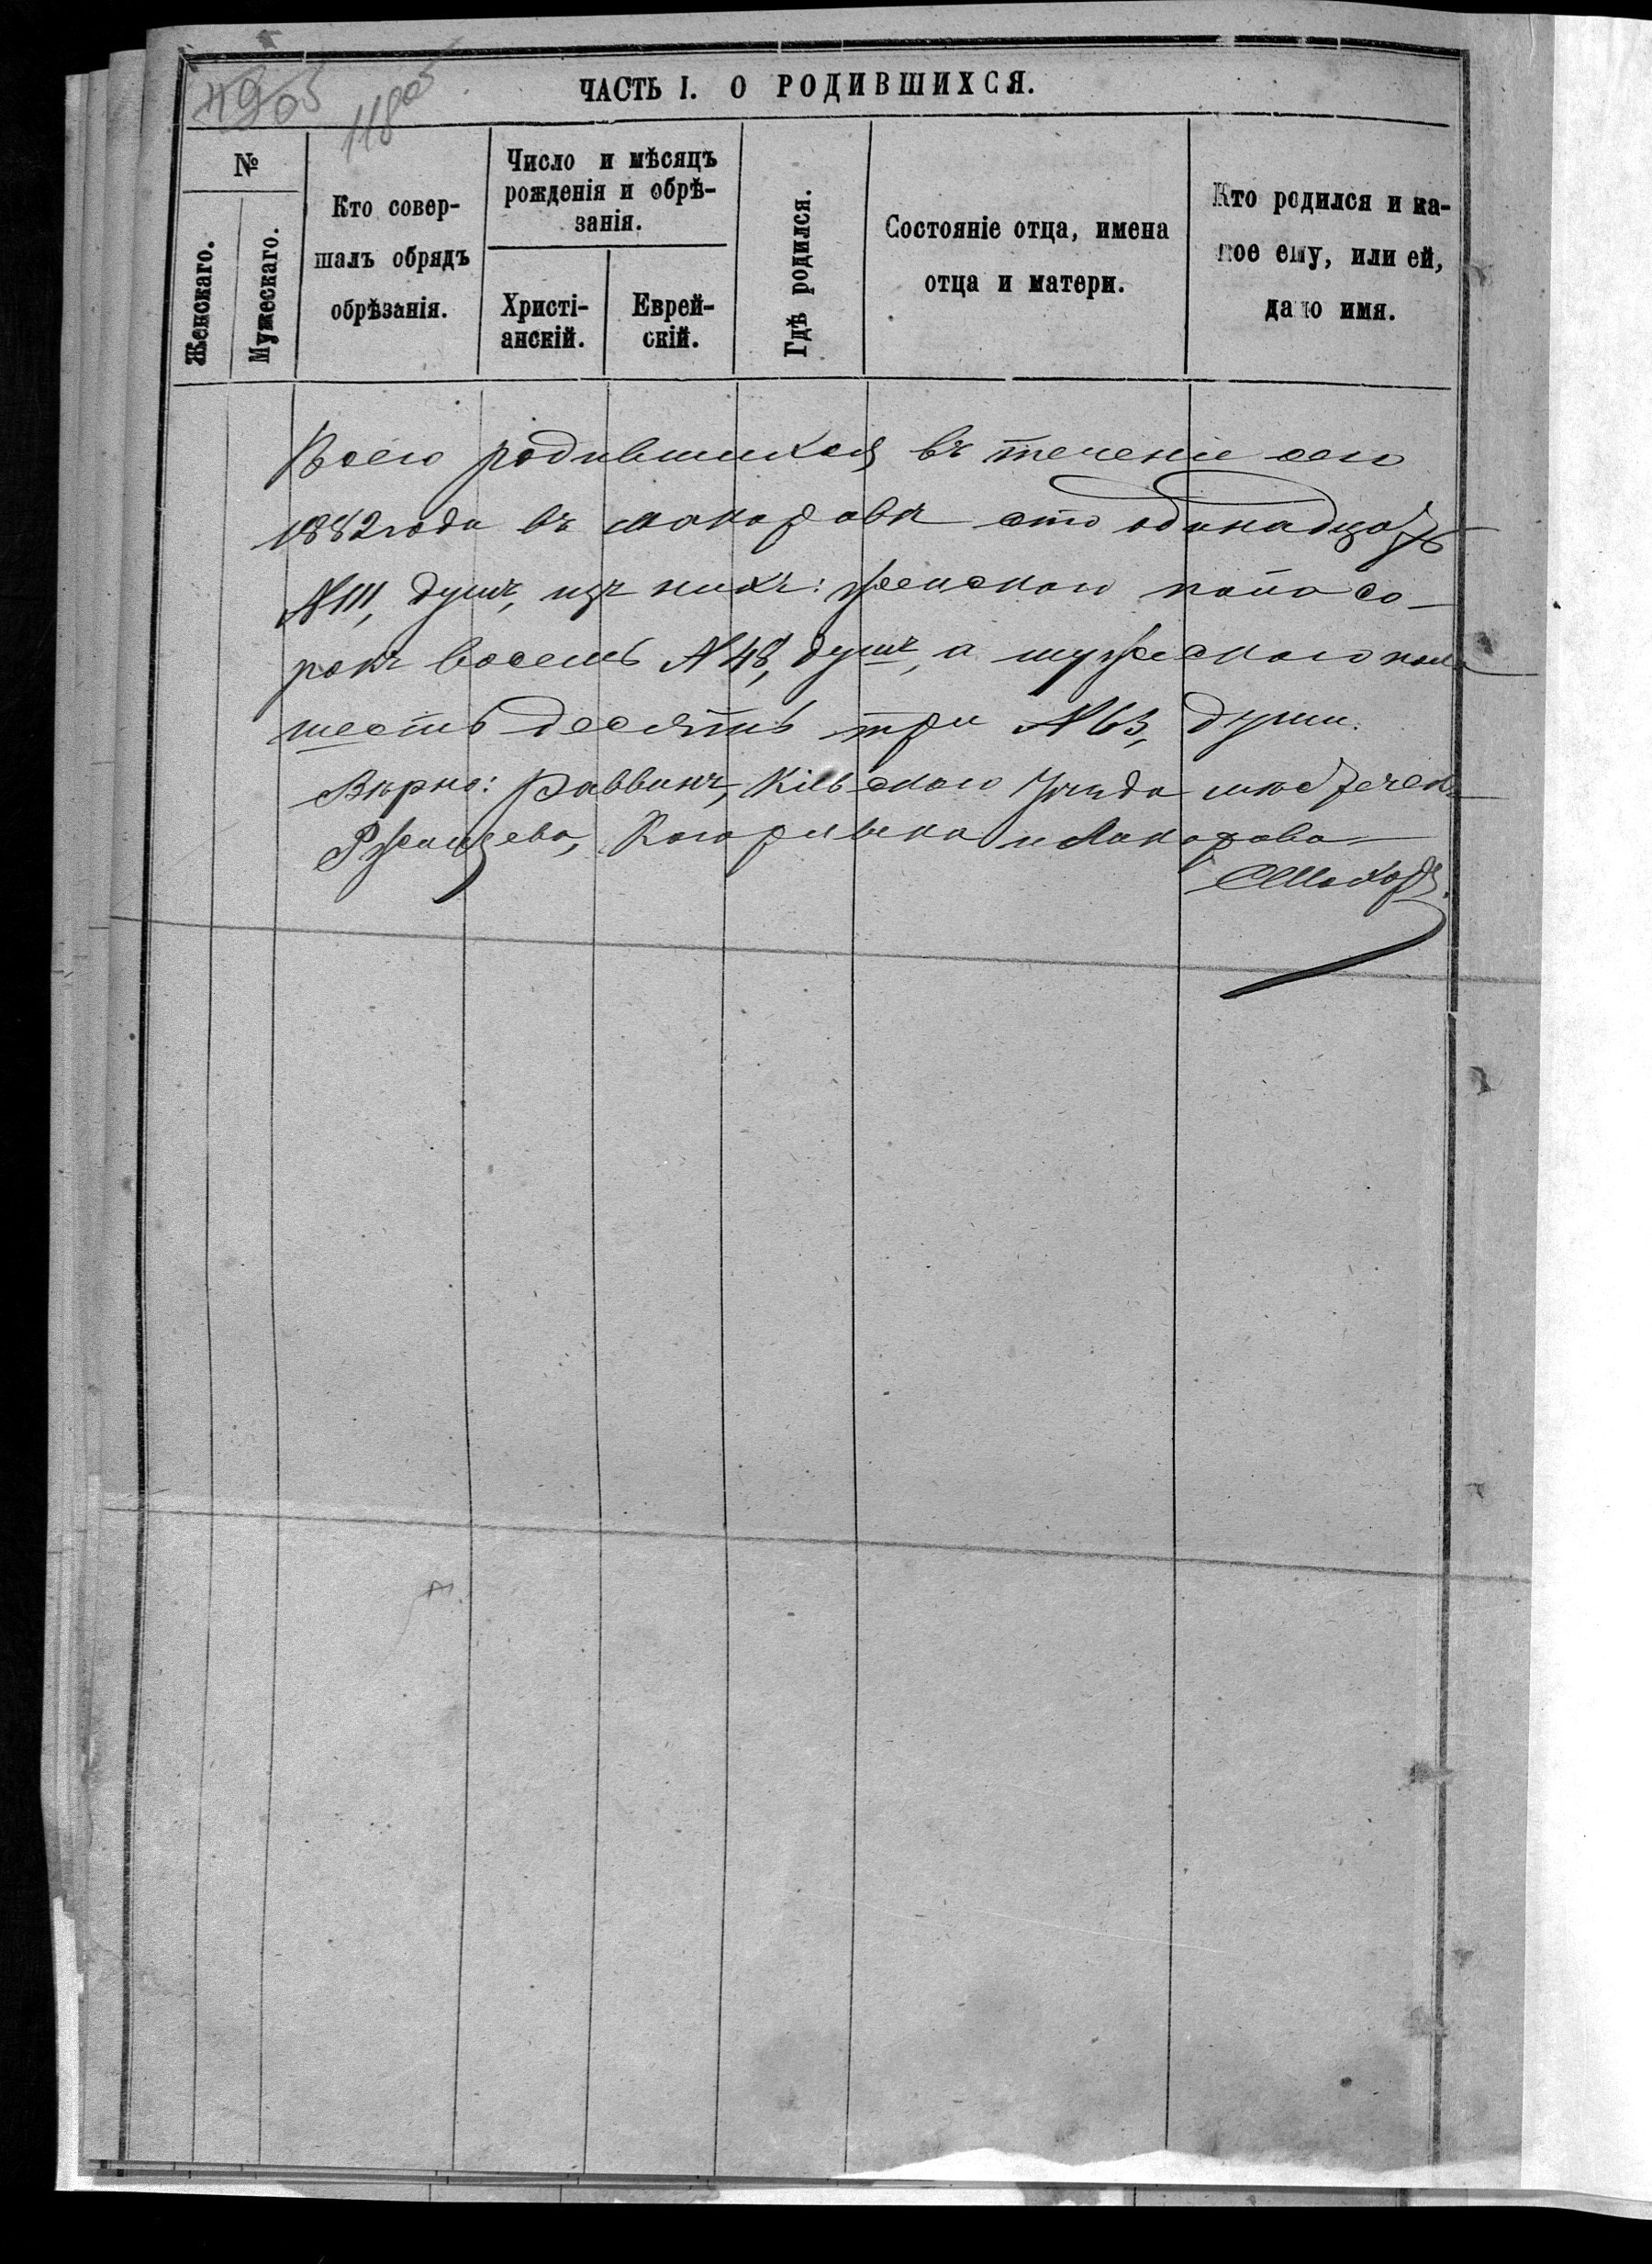 ЧАСТЬ I. О РОДИВШИХСЯ.
118 об
№
Женскаго.
Мужескаго.
Кто совер-
шалъ обрядъ
обрѣзанія.
Число и мѣсяцъ
рожденія и обрѣ-
занія.
Христі-
анскій.
Еврей-
скій.
Гдѣ родился.
Состояніе отца, имена
отца и матери.
Кто родился и ка-
кое ему, или ей,
дано имя.
Всего родившихся въ теченіе сего
1882 года въ Макаровѣ сто одинадцать
№ 111, душъ, изъ нихъ: женского пола со-
рокъ восемь № 48, душъ, а мужеского пола
шесть десять три № 63, души.
Вѣрно: Раввинъ, Кіевского Уѣзда мѣстечек
Ржищева, Кагарлыка и Макарова